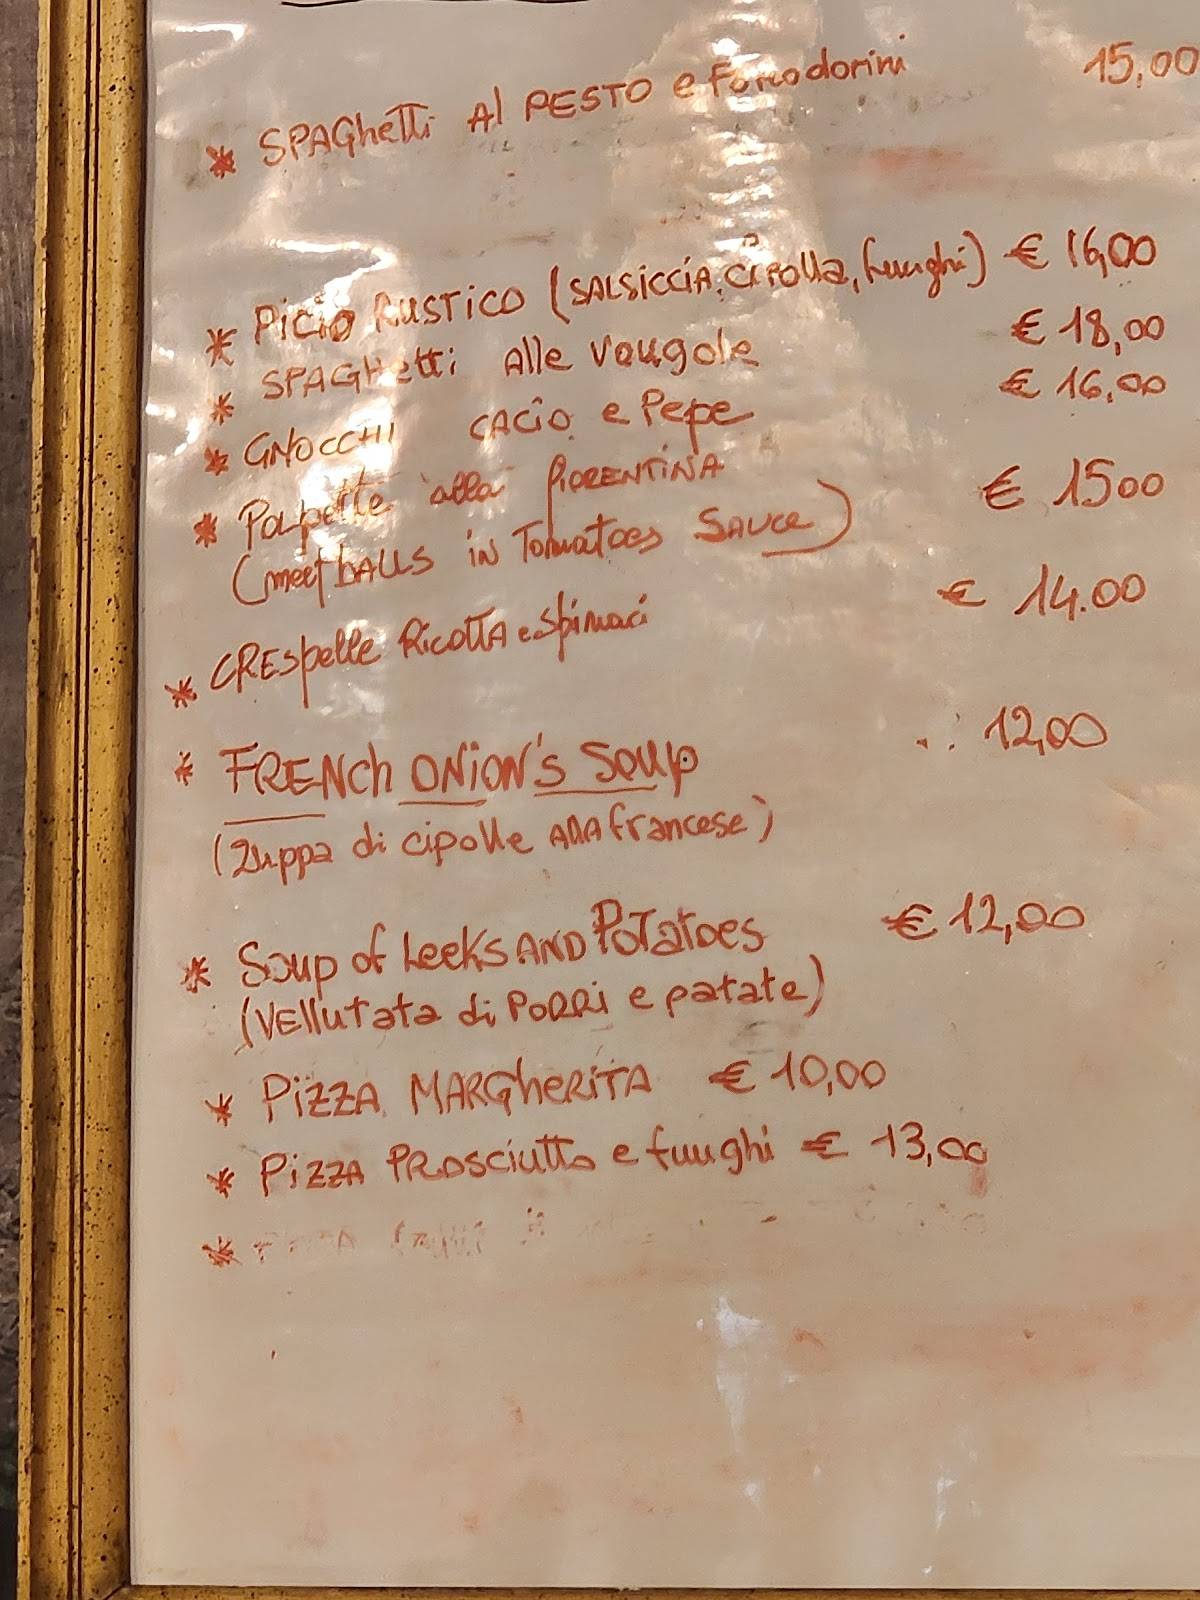 * SPAGhetti Al PESTO e Pomodorini 15,00
* Picio RUSTiCO (SALSiCCiA, CiPOlla, funghi) € 16,00
* SPAGHetti Alle Vongole € 18,00
* GNOCCHI CACiO e Pepe € 16,00
* Polpette alla fiORENTiNA
(meetbAlls in Tomatoes SAUce) € 1500
* CREspelle RicottA e Spinaci € 14.00
* FRENCh ONiON's SOUp 12,00
(Zuppa di cipolle AllA francese)
* Soup of LeeKs AND PoTatoes € 12,00
(Vellutata di PORRi e patate)
* PiZZA MARGheRiTA € 10,00
* PiZZA PROSCiutto e funghi € 13,00
*